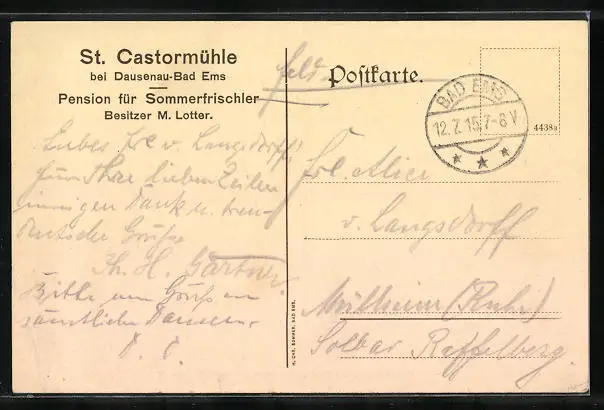 St. Castormühle
bei Dausenau-Bad Ems
Pension für Sommerfrischler
Besitzer M. Lotter.
Feld- Postkarte.
BAD EMS
12.7.15.7-8V
4438a
Liebes Frl. v. Langsdorff!
Für Ihre lieben Zeilen
innigen Dank u. treu-
deutsche Grüße
Th. H. Gärtner.
Bitte um Gruß an
sämtliche Damen.
D. O.
Frl. Alice
v. Langsdorff
Mülheim (Ruhr)
Solbad Raffelberg.